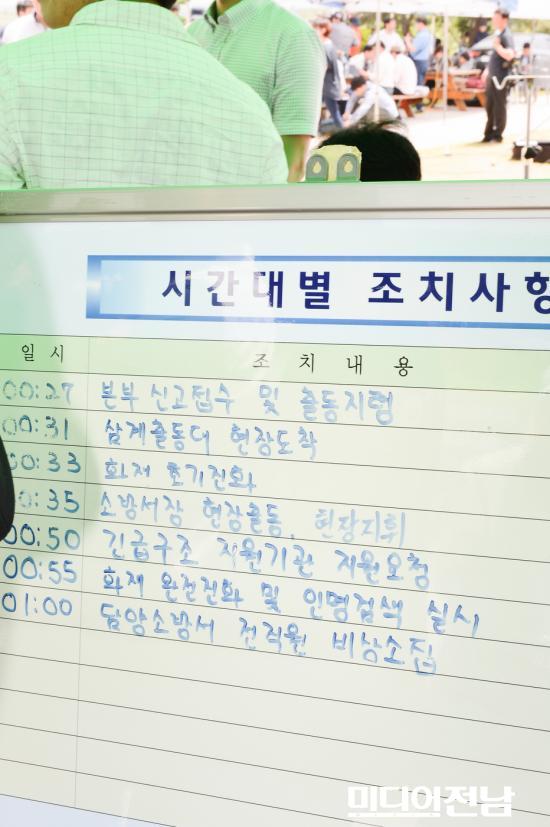 시간대별 조치사항
일 시 조 치 내 용
00:27 본부 신고접수 및 출동지령
00:31 삼계출동대 현장도착
00:33 화재 초기진화
00:35 소방서장 현장출동, 현장지휘
00:50 긴급구조 지원기관 지원요청
00:55 화재 완전진화 및 인명검색 실시
01:00 담양소방서 전직원 비상소집
미디어전남